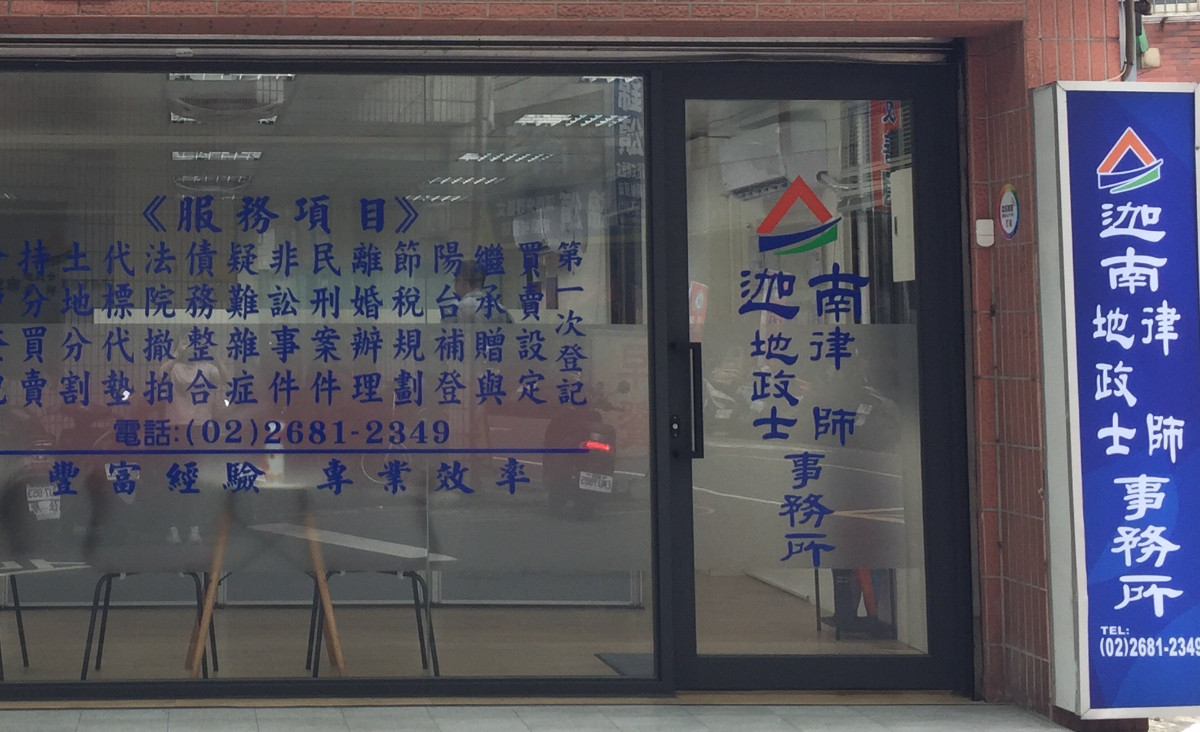 《服務項目》
第一次登記
買賣設定
繼承贈與
陽台補登
節稅規劃
離婚辦理
民刑案件
非訟事件
疑難雜症
債務整合
法院撤拍
代標代墊
土地分割
持分買賣
電話:(02)2681-2349
豐富經驗 專業效率
迦南
地政士
律師
事務所
迦南
地政士
律師
事務所
TEL:
(02)2681-2349